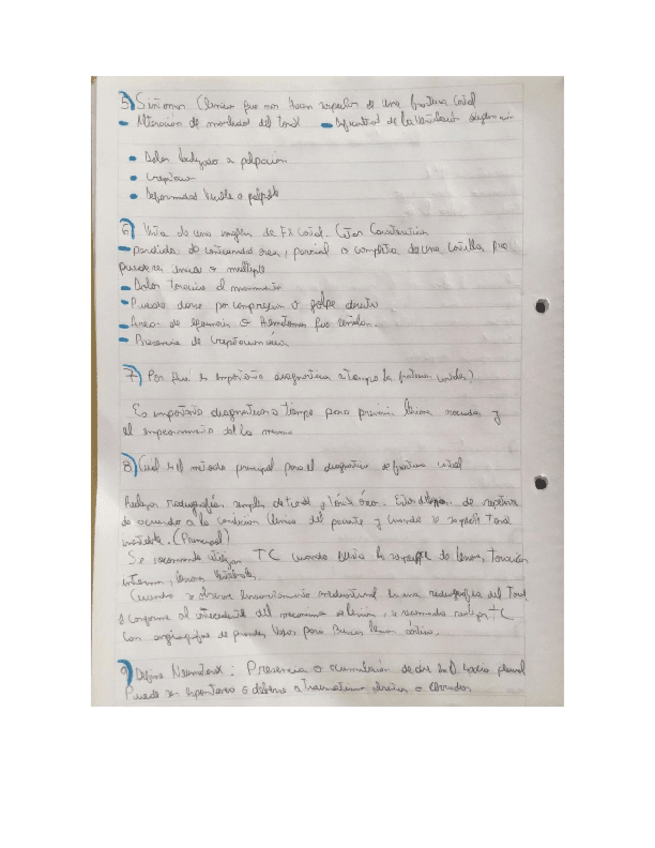 5) Síntomas Clínicos que nos hacen sospechar de una fractura Costal
- Alteración de movilidad del torax - de la Ventilación
• Dolor a palpación
• Crepitacion
• Deformidad Visible o palpable
6) de una de FX Costal.
- perdida de continuidad osea, parcial o completa de una costilla que
puede ser unica o multiple
- Dolor toracico al movimiento
- Puede darse por compresion o golpe directo
- Areas de equimosis o Hematomas que
- Presencia de Crepitacion osea
7) Por qué es importante diagnosticar a tiempo la fractura costal?
Es importante diagnosticar a tiempo para prevenir y
el empeoramiento del la misma
8) Cual es el método principal para el diagnostico de fractura costal
Realizar Radiografías simples de torax y Tórax óseo. de repetirse
de acuerdo a la condicion Clinica del paciente y cuando se sospeche Torax
inestable. (Principal)
Se recomienda utilizar TC cuando exista la sospecha de lesiones, toracicas
internas,
Cuando se observe mediastinal en una radiografia del Torax
o conforme al antecedente del mecanismo de lesion, se recomienda realizar TC
Con angiografia de grandes Vasos para Buscar lesion aórtica.
9) Define Neumotorax: Presencia o acumulación de aire en el espacio pleural
Puede ser espontaneo o deberse a traumatismos abiertos o Cerrados